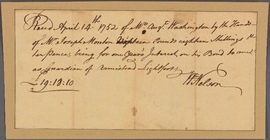 Recd April 14th 1752 of Mr Augt Washington by the Hands
of Mr Joseph Morton Eighteen Pounds eighteen Shillings &
ten Pence; being for one Year's Interest, on his Bond to me
as Guardian of Lightfoot
£19:18:10
Nelson